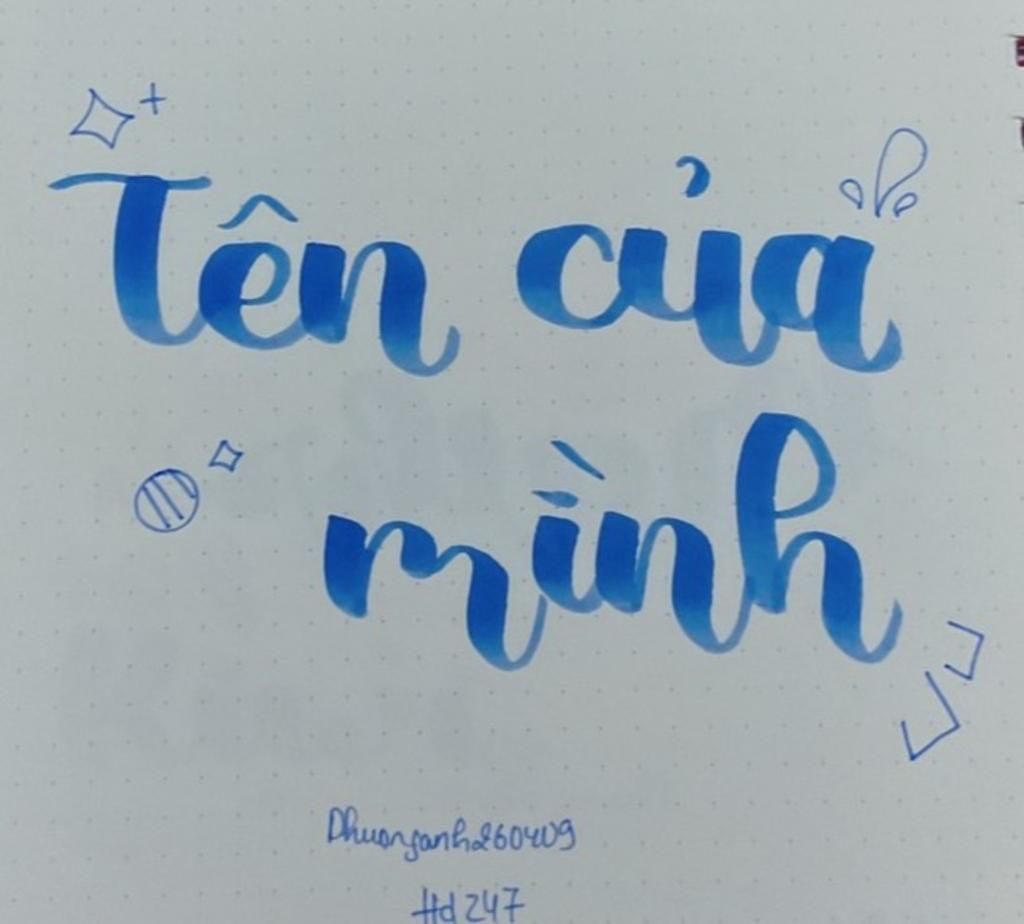 Tên của
mình
Phuonganh260409
Hd247